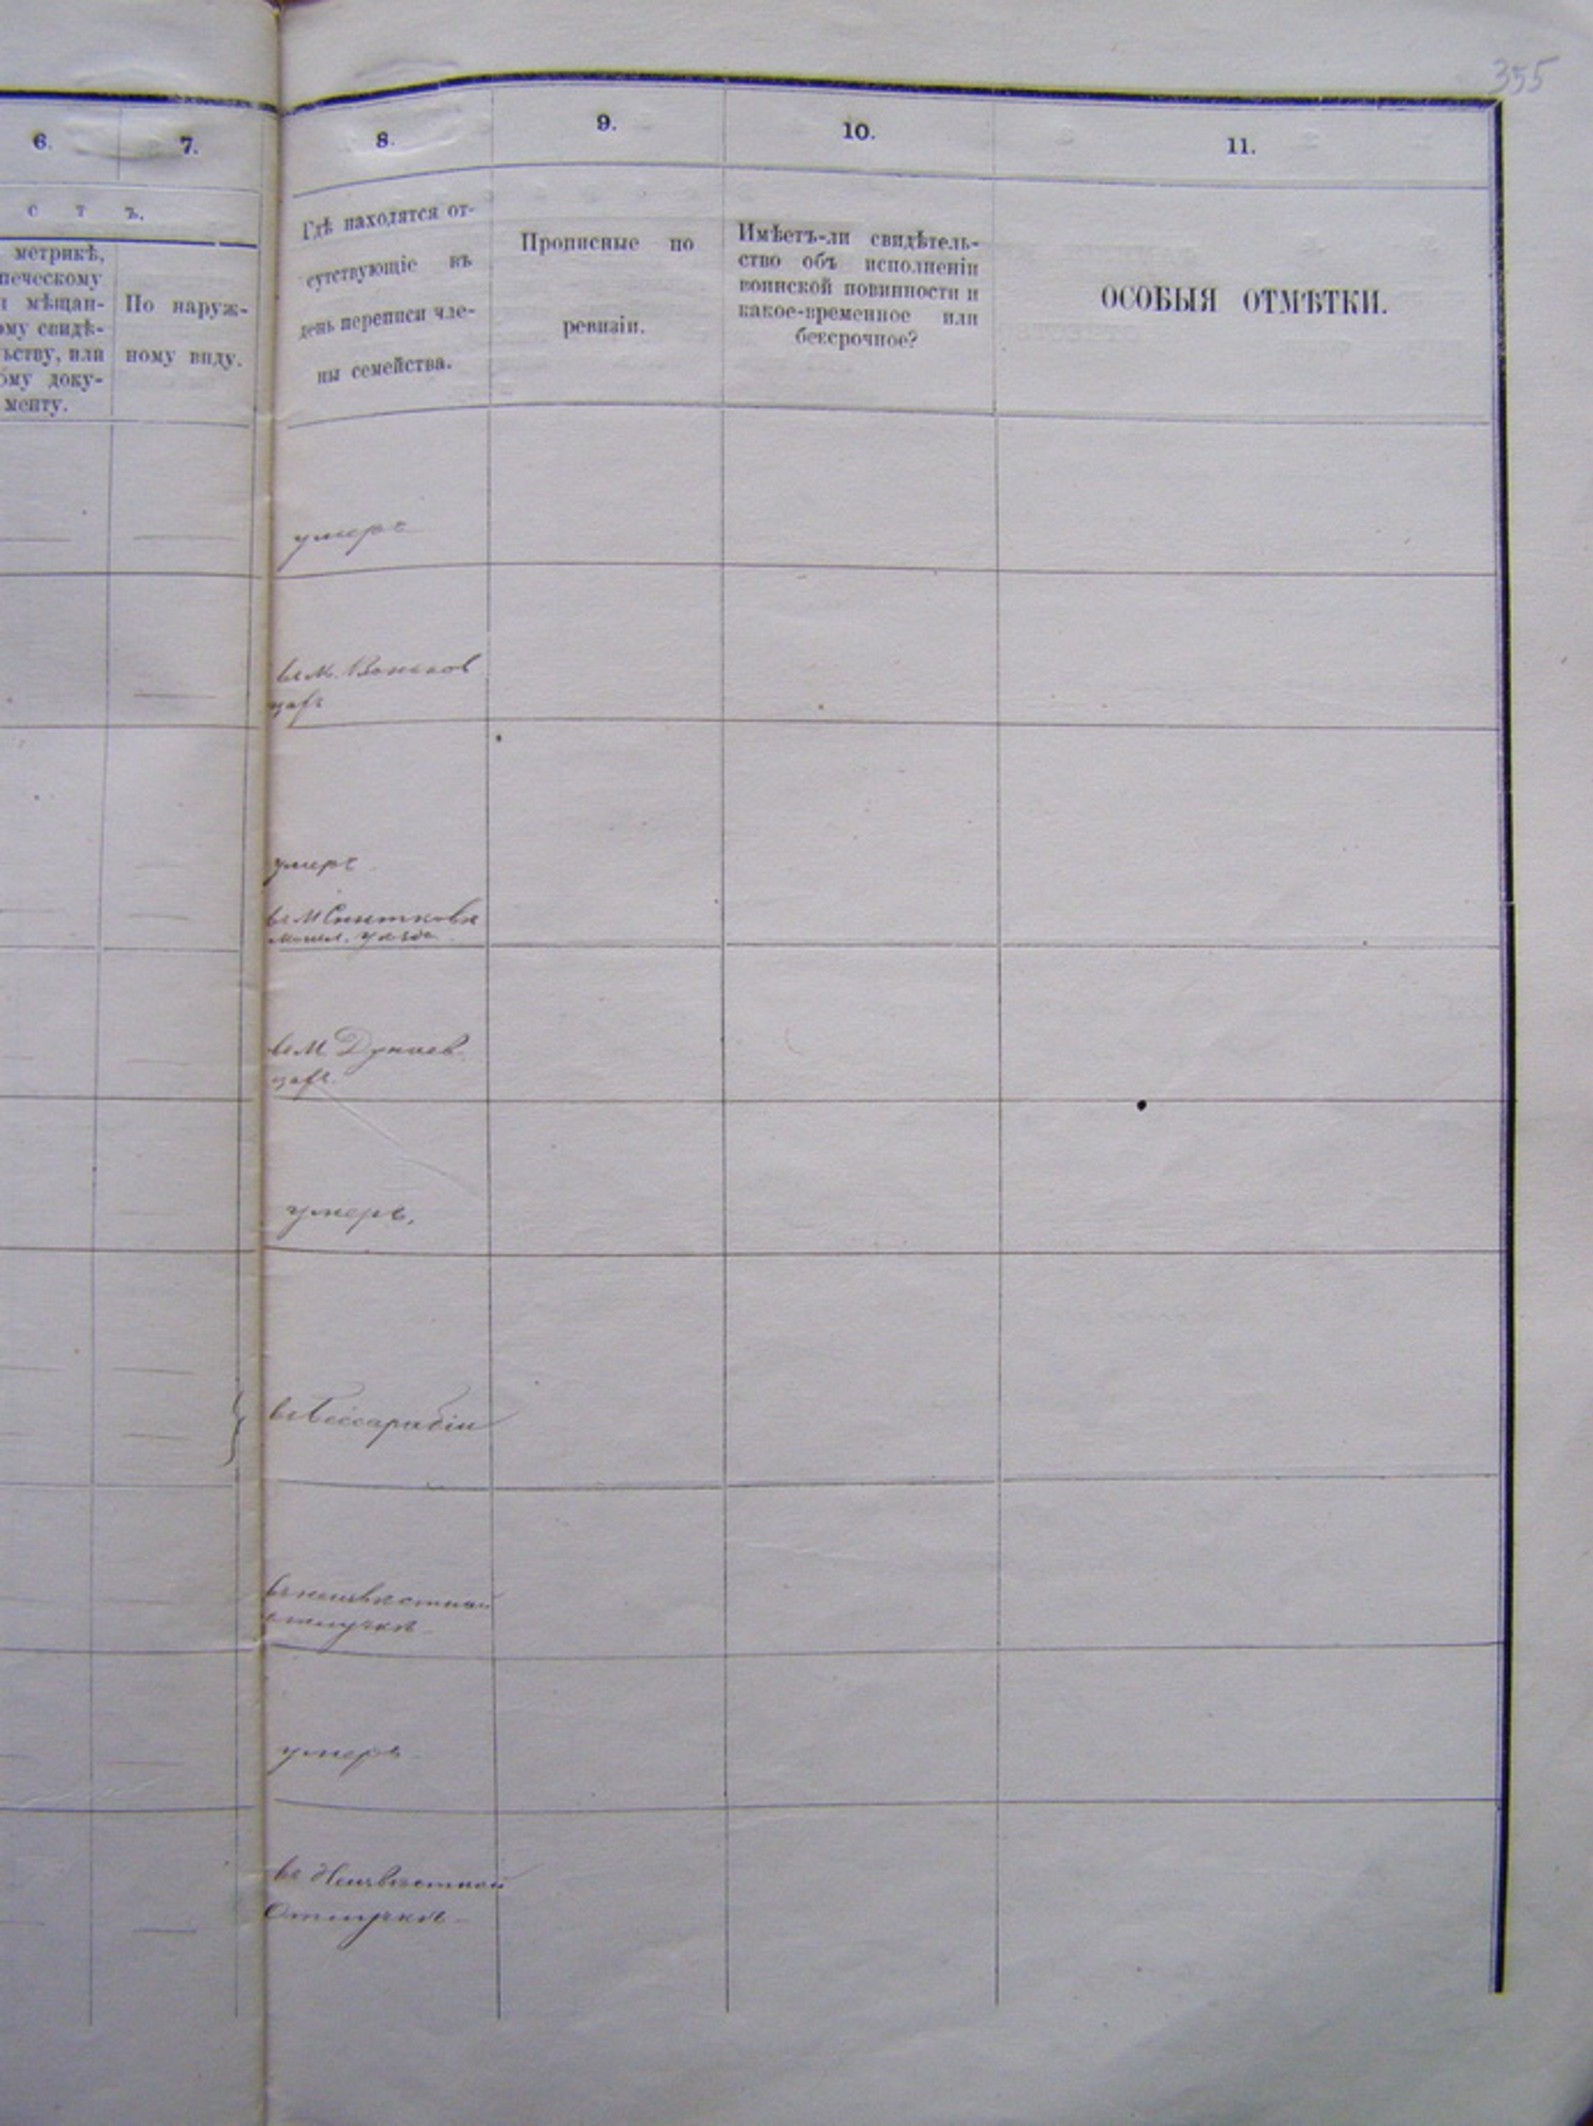 355
6.
7.
8.
9.
10.
11.
с т ъ.
метрикѣ,
печескому
и мѣщан-
ому свидѣ-
ьству, или
ому доку-
менту.
По наруж-
ному виду.
Гдѣ находятся от-
сутствующіе въ
день переписи чле-
ны семейства.
Прописные по
ревизіи.
Имѣетъ-ли свидѣтель-
ство объ исполненіи
воинской повинности и
какое-временное или
безсрочное?
ОСОБЫЯ ОТМѢТКИ.
умеръ
въ М.
умеръ
въ М Снитковѣ
уѣзда
въ М Дунаев-
цахъ
умеръ.
въ Бессарабіи
въ неизвѣстной
отлучкѣ
умеръ
въ Неизвѣстной
Отлучкѣ